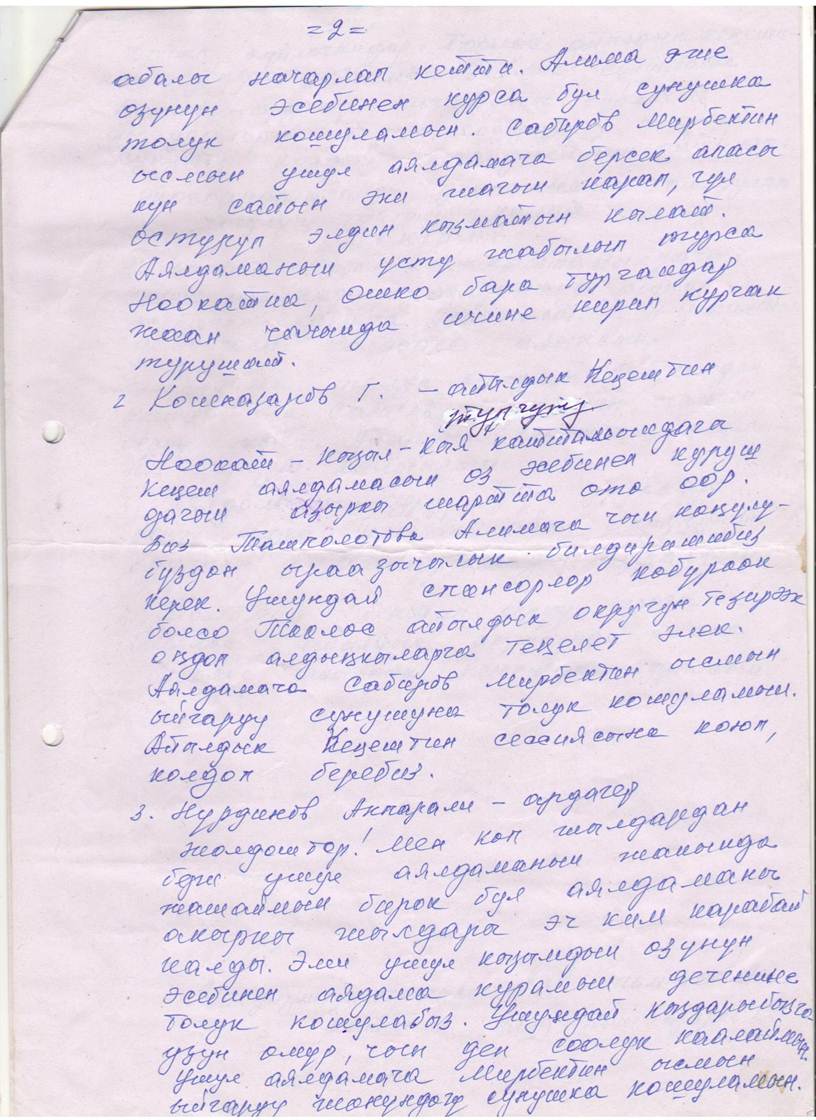 =2=
абалы начарлап кетти. Алима эже
озунун эсебинен курса бул сунушка
толук кошуламын. Сабиров Мирбектин
ысмын ушул аялдамага берсек апасы
кун сайын эки жагын карап, гул
остуруп элдин кызматын кылат.
Аялдаманын усту жабылып турса
Ноокатка, Ошко бара тургандар
жаан чачында ичине кирип курчак
турушат.
2 Г. – айылдык Кеңештин
Ноокат – Кызыл-Кыя каттамындагы
Кеңеш аялдамасын оз эсебинен куруш
дагын азыркы шартта ото оор.
Биз Ташполотова Алимага чын коңулу-
буздон ыраазычылык билдиришибиз
керек. Ушундай спонсорлор кобуроок
болсо Тоолос айылдык округун тезирээк
оңдоп алдыңкыларга теңелет элек.
Аялдамага Сабиров Мирбектин ысмын
ыйгаруу сунушуна толук кошуламын.
Айылдык Кеңештин сессиясына коюп,
колдоп беребиз.
3. Нурдинов Анпарали – ардагер
Жолдоштор! Мен коп жылдардан
бери ушул аялдаманын жанында
жашаймын бирок бул аялдаманы
акыркы жылдары эч ким карабай
калды. Эми ушул кызымдын озунун
эсебинен аялдама курамын дегенине
толук кошулабыз. Ушундай кыздарыбызга
узун омур, чын ден соолук каалаймын.
Ушул аялдамага Мирбектин ысмын
ыйгаруу жонундогу сунушка кошуламын.